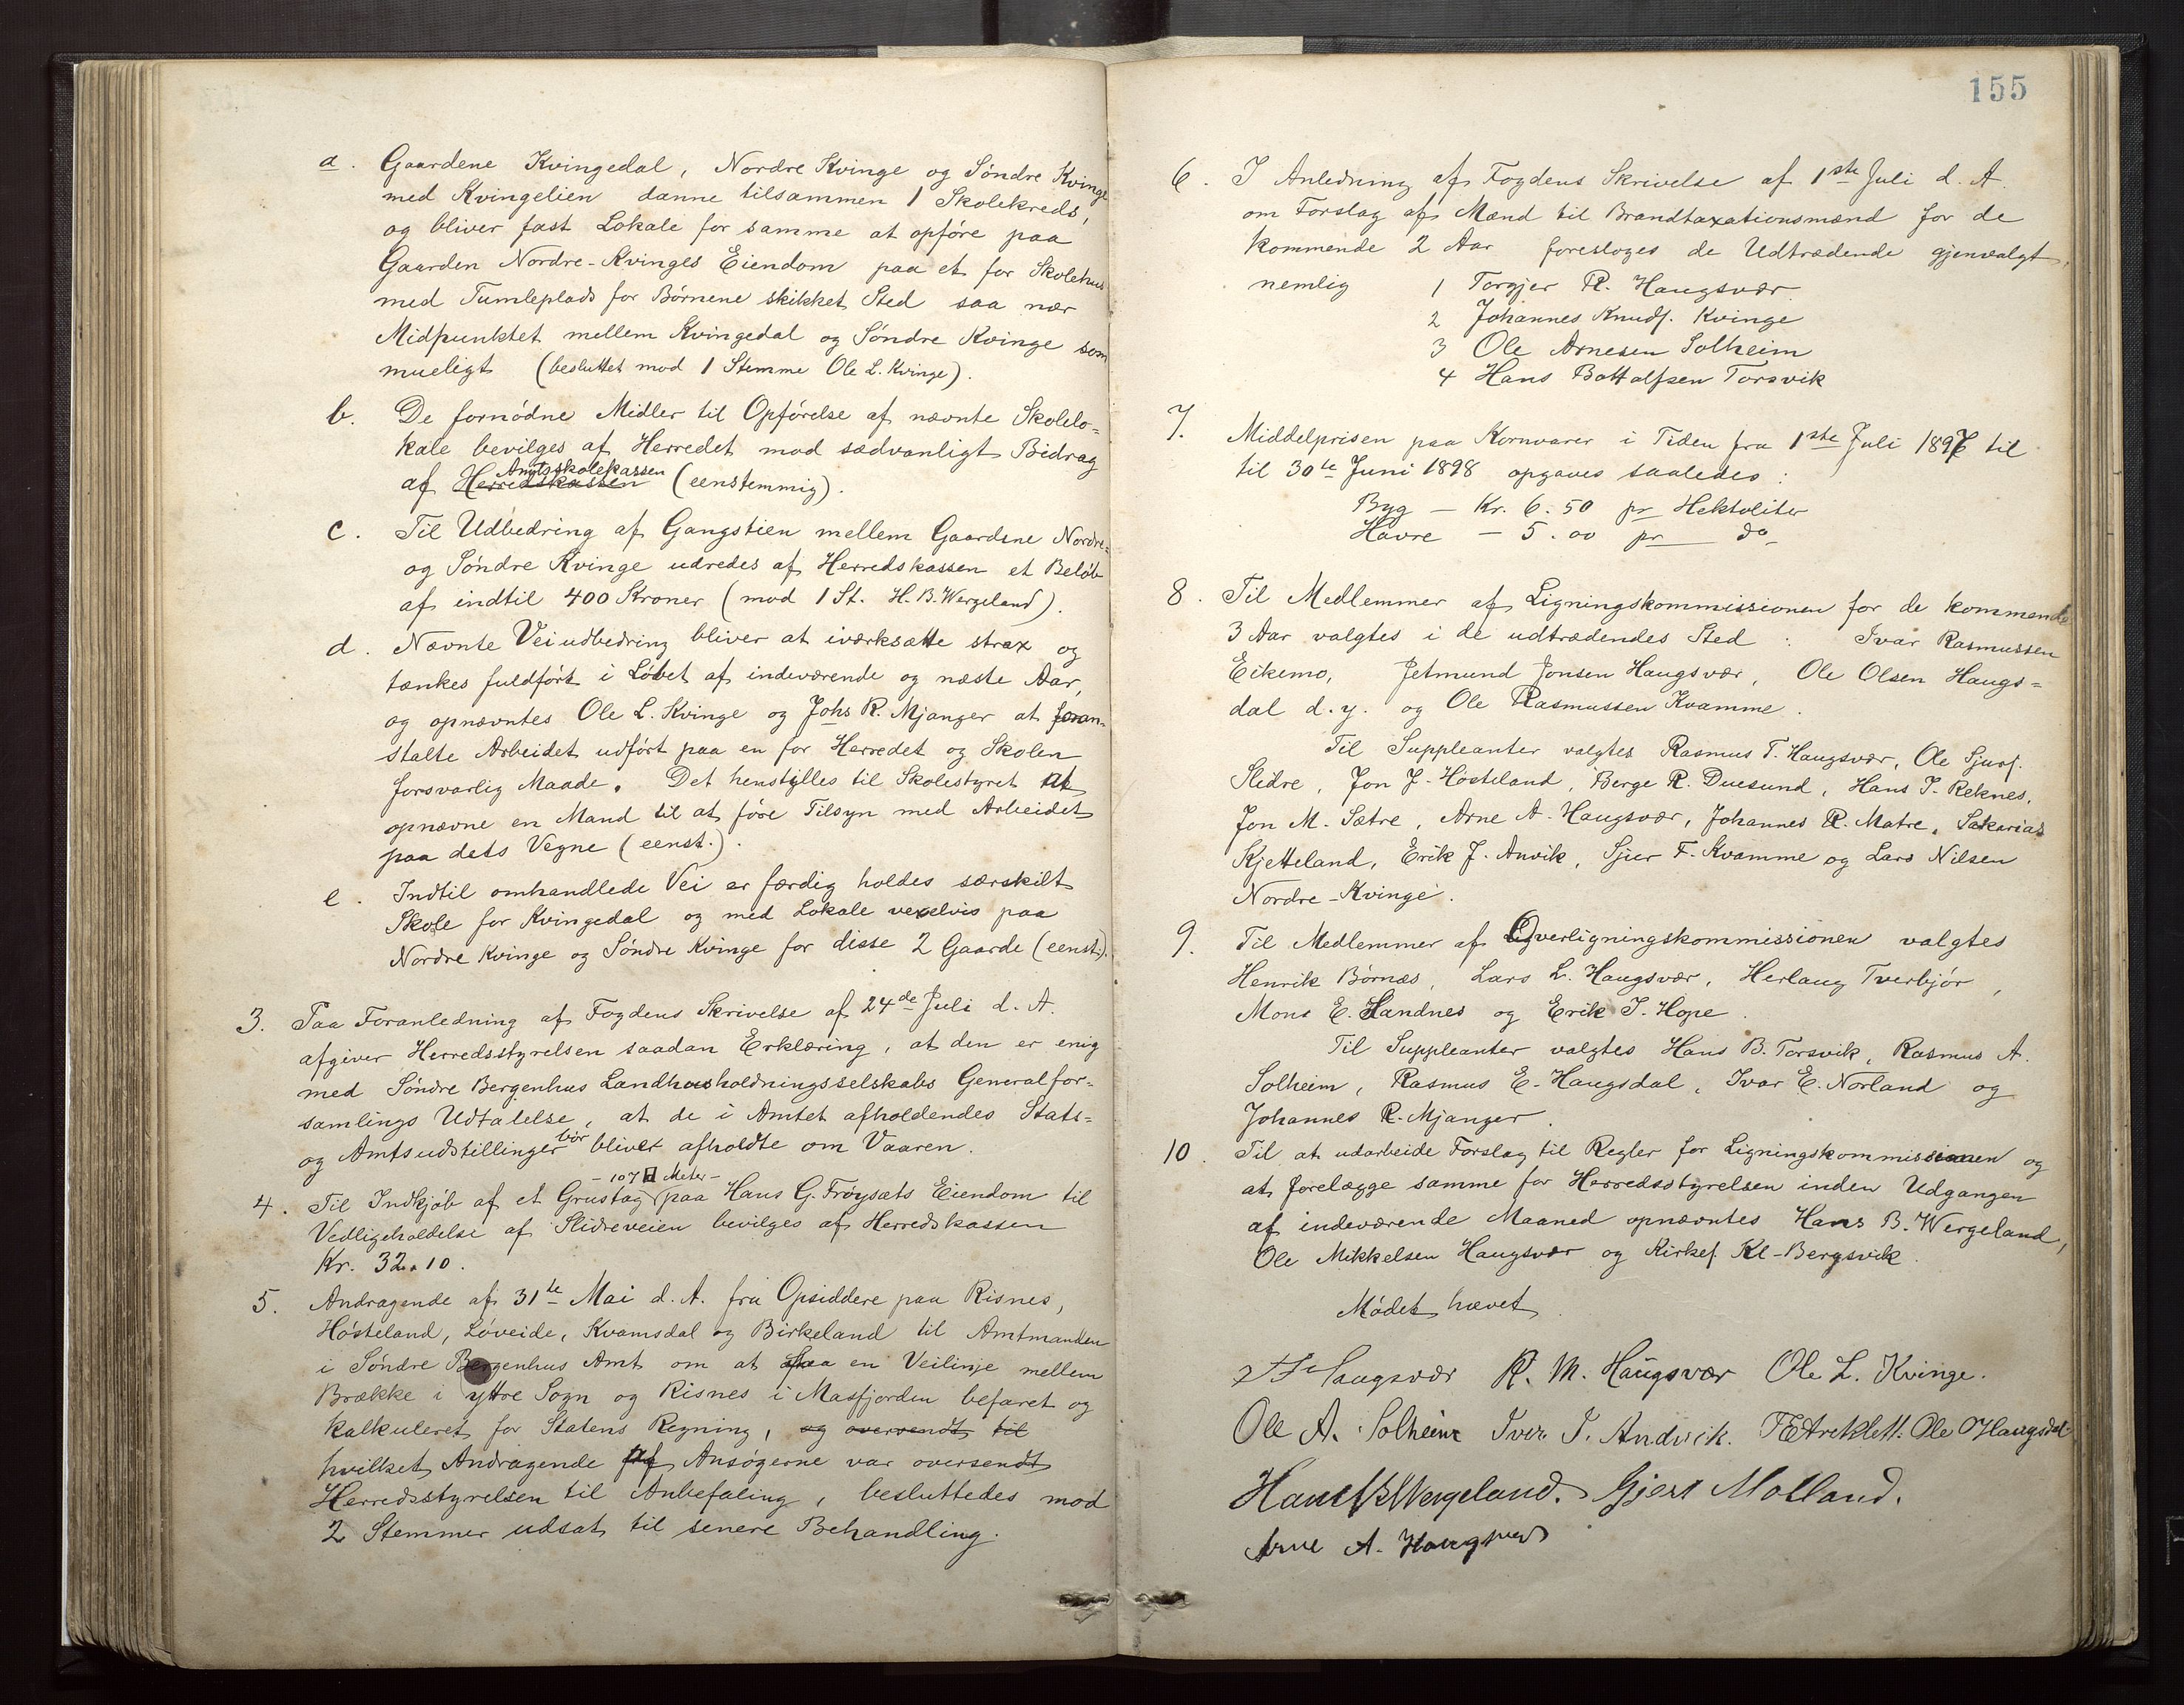 a. Gaardene Kvingedal, Nordre Kvinge og Söndre Kvinge
med Kvingelien danne tilsammen 1 Skolekreds,
og bliver fast Lokale for samme at opföre paa
Gaarden Nordre-Kvinges Eiendom paa et for Skolehus
med Tumleplads for Börnene skikket Sted saa nær
Midpunktet mellem Kvingedal og Söndre Kvinge som
mueligt (besluttet mod 1 Stemme Ole L. Kvinge).
b. De fornödne Midler til Opförelse af nævnte Skolelo-
kale bevilges af Herredet mod sædvanligt Bidrag
Amtsskolekassen
af Herredskassen (eenstemmig).
c. Til Udbedring af Gangstien mellem Gaardene Nordre-
og Söndre Kvinge udredes af Herredskassen et Belöb
af indtil 400 Kroner (mod 1 St. H. B. Wergeland).
d. Nævnte Veiudbedring bliver at iværksætte strax og
tænkes fuldfört i Löbet af indeværende og næste Aar,
og opnævntes Ole L. Kvinge og Johs R. Mjanger at foran-
stalte Arbeidet udfört paa en for Herredet og Skolen
forsvarlig Maade. Det henstilles til Skolestyret at
opnævne en Mand til at före Tilsyn med Arbeidet
paa dets Vegne (eenst.).
e. Indtil omhandlede Vei er færdig holdes særskilt
Skole for Kvingedal og med Lokale vexelvis paa
Nordre Kvinge og Söndre Kvinge for disse 2 Gaarde (eenst.).
3. Paa Foranledning af Fogdens Skrivelse af 24de Juli d. A.
afgiver Herredsstyrelsen saadan Erklæring, at den er enig
med Söndre Bergenhus Landhusholdningsselskabs Generalfor-
samlings Udtalelse, at de i Amtet afholdendes Stats-
og Amtsudstillinger bör bliver afholdte om Vaaren.
- 107 □ Meter -
4. Til Indkjöb af et Grustag paa Hans G. Fröysæts Eiendom til
Vedligeholdelse af Slidreveien bevilges af Herredskassen
Kr. 32.10.
5. Andragende af 31te Mai d. A. fra Opsiddere paa Risnes,
Hösteland, Löveide, Kvamsdal og Birkeland til Amtmanden
i Söndre Bergenhus Amt om at faa en Veilinje mellem
Brække i yttre Sogn og Risnes i Masfjorden befaret og
kalkuleret for Statens Regning, og oversendt til
hvilket Andragende af Ansögerne var oversendt
Herredsstyrelsen til Anbefaling, besluttedes mod
2 Stemmer udsat til senere Behandling.
155
6. I Anledning af Fogdens Skrivelse af 1ste Juli d. A.
om Forslag af Mænd til Brandtaxationsmænd for de
kommende 2 Aar foresloges de Udtrædende gjenvalgt,
nemlig 1 Torgjer R. Haugsvær
2 Johannes Knuds. Kvinge
3 Ole Arnesen Solheim
4 Hans Bottolfsen Torsvik
7. Middelprisen paa Kornvarer i Tiden fra 1ste Juli 1897 til
til 30te Juni 1898 opgaves saaledes:
Byg - Kr. 6.50 pr Hektoliter
Havre - 5.00 pr do
8. Til Medlemmer af Ligningskommissionen for de kommende
3 Aar valgtes i de udtrædendes Sted: Ivar Rasmussen
Eikemo, Jetmund Jonsen Haugsvær, Ole Olsen Haugs-
dal d.y. og Ole Rasmussen Kvamme.
Til Suppleanter valgtes Rasmus T. Haugsvær, Ole Sjurs.
Slidre, Jon J. Hösteland, Berge R. Duesund, Hans J. Reknes,
Jon M. Sætre, Arne A. Haugsvær, Johannes R. Matre, Sakarias
Kjetteland, Erik J. Anvik, Sjur F. Kvamme og Lars Nilsen
Nordre-Kvinge.
9. Til Medlemmer af Overligningskommissionen valgtes
Henrik Börnæs, Lars L. Haugsvær, Herlaug Tverbjör,
Mons E. Handnes og Erik J. Hope.
Til Suppleanter valgtes Hans B. Torsvik, Rasmus A.
Solheim, Rasmus E. Haugsdal, Ivar E. Norland og
Johannes R. Mjanger.
10. Til at udarbeide Forslag til Regler for Ligningskommissionen og
at forelægge samme for Herredsstyrelsen inden Udgangen
af indeværende Maaned opnævntes Hans B. Wergeland,
Ole Mikkelsen Haugsvær og Kirkes. Kl-Bergsvik.
Mödet hævet.
Haugsvær R. M. Haugsvær Ole L. Kvinge.
Ole A. Solheim Iver J. Andvik. Ole O Haugsdal
Hans B Wergeland. Gjert Molland.
Arne A. Haugsvær